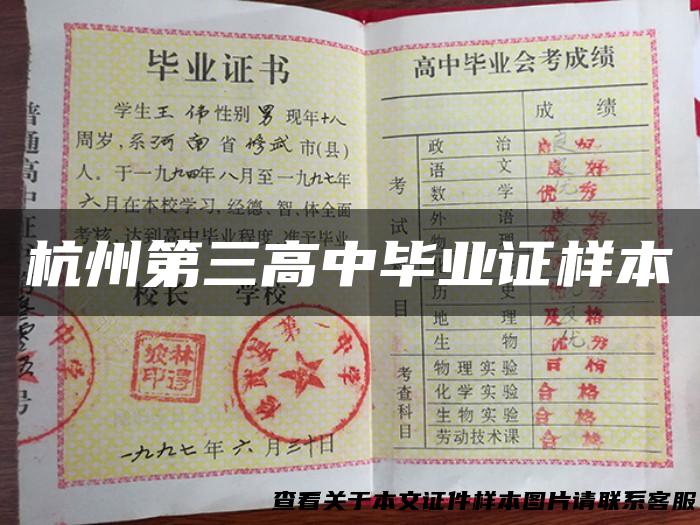 毕业证书
学生王 伟性别男现年十八
周岁,系河南省修武市(县)
人。于一九九四年八月至一九九七年
六月在本校学习,经德、智、体全面
考核,达到高中毕业程度,准予毕业
校长 学校
一九九七年六月三十日
高中毕业会考成绩
成 绩
考试科目
政 治 良好
语 文 良好
数 学 优秀
外 语 良好
物 理
历 史 优秀
地 理 及格
生 物 优秀
考查科目
物理实验 合格
化学实验 合格
生物实验 合格
劳动技术课 合格
杭州第三高中毕业证样本
查看关于本文证件样本图片请联系客服